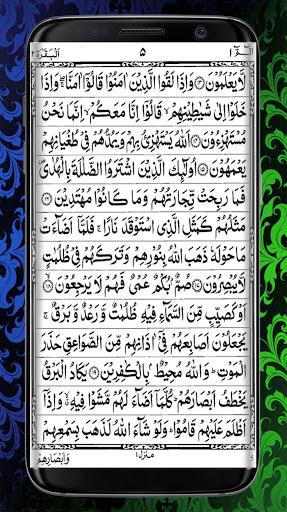 البقرة ٢ ٥ الٓمّٓ ١
لَّا يَعْلَمُوْنَ ﴿۱۳﴾ وَاِذَا لَقُوا الَّذِيْنَ اٰمَنُوْا قَالُوْٓا اٰمَنَّا ۖۚ وَاِذَا
خَلَوْا اِلٰى شَيٰطِيْنِهِمْ ۙ قَالُوْٓا اِنَّا مَعَكُمْ ۙ اِنَّمَا نَحْنُ
مُسْتَهْزِءُوْنَ ﴿۱۴﴾ اَللّٰهُ يَسْتَهْزِئُ بِهِمْ وَيَمُدُّهُمْ فِيْ طُغْيَانِهِمْ
يَعْمَهُوْنَ ﴿۱۵﴾ اُولٰٓئِكَ الَّذِيْنَ اشْتَرَوُا الضَّلٰلَةَ بِالْهُدٰى ۪
فَمَا رَبِحَتْ تِّجَارَتُهُمْ وَمَا كَانُوْا مُهْتَدِيْنَ ﴿۱۶﴾
مَثَلُهُمْ كَمَثَلِ الَّذِى اسْتَوْقَدَ نَارًا ۚ فَلَمَّآ اَضَآءَتْ
مَا حَوْلَهٗ ذَهَبَ اللّٰهُ بِنُوْرِهِمْ وَتَرَكَهُمْ فِيْ ظُلُمٰتٍ
لَّا يُبْصِرُوْنَ ﴿۱۷﴾ صُمٌّۢ بُكْمٌ عُمْيٌ فَهُمْ لَا يَرْجِعُوْنَ ﴿۱۸﴾
اَوْ كَصَيِّبٍ مِّنَ السَّمَآءِ فِيْهِ ظُلُمٰتٌ وَّرَعْدٌ وَّبَرْقٌ ۚ
يَجْعَلُوْنَ اَصَابِعَهُمْ فِيْٓ اٰذَانِهِمْ مِّنَ الصَّوَاعِقِ حَذَرَ
الْمَوْتِ ؕ وَاللّٰهُ مُحِيْطٌۢ بِالْكٰفِرِيْنَ ﴿۱۹﴾ يَكَادُ الْبَرْقُ
يَخْطَفُ اَبْصَارَهُمْ ؕ كُلَّمَآ اَضَآءَ لَهُمْ مَّشَوْا فِيْهِ ۙ وَاِذَآ
اَظْلَمَ عَلَيْهِمْ قَامُوْا ؕ وَلَوْ شَآءَ اللّٰهُ لَذَهَبَ بِسَمْعِهِمْ
منزل ۱ وَاَبْصَارِهِمْ